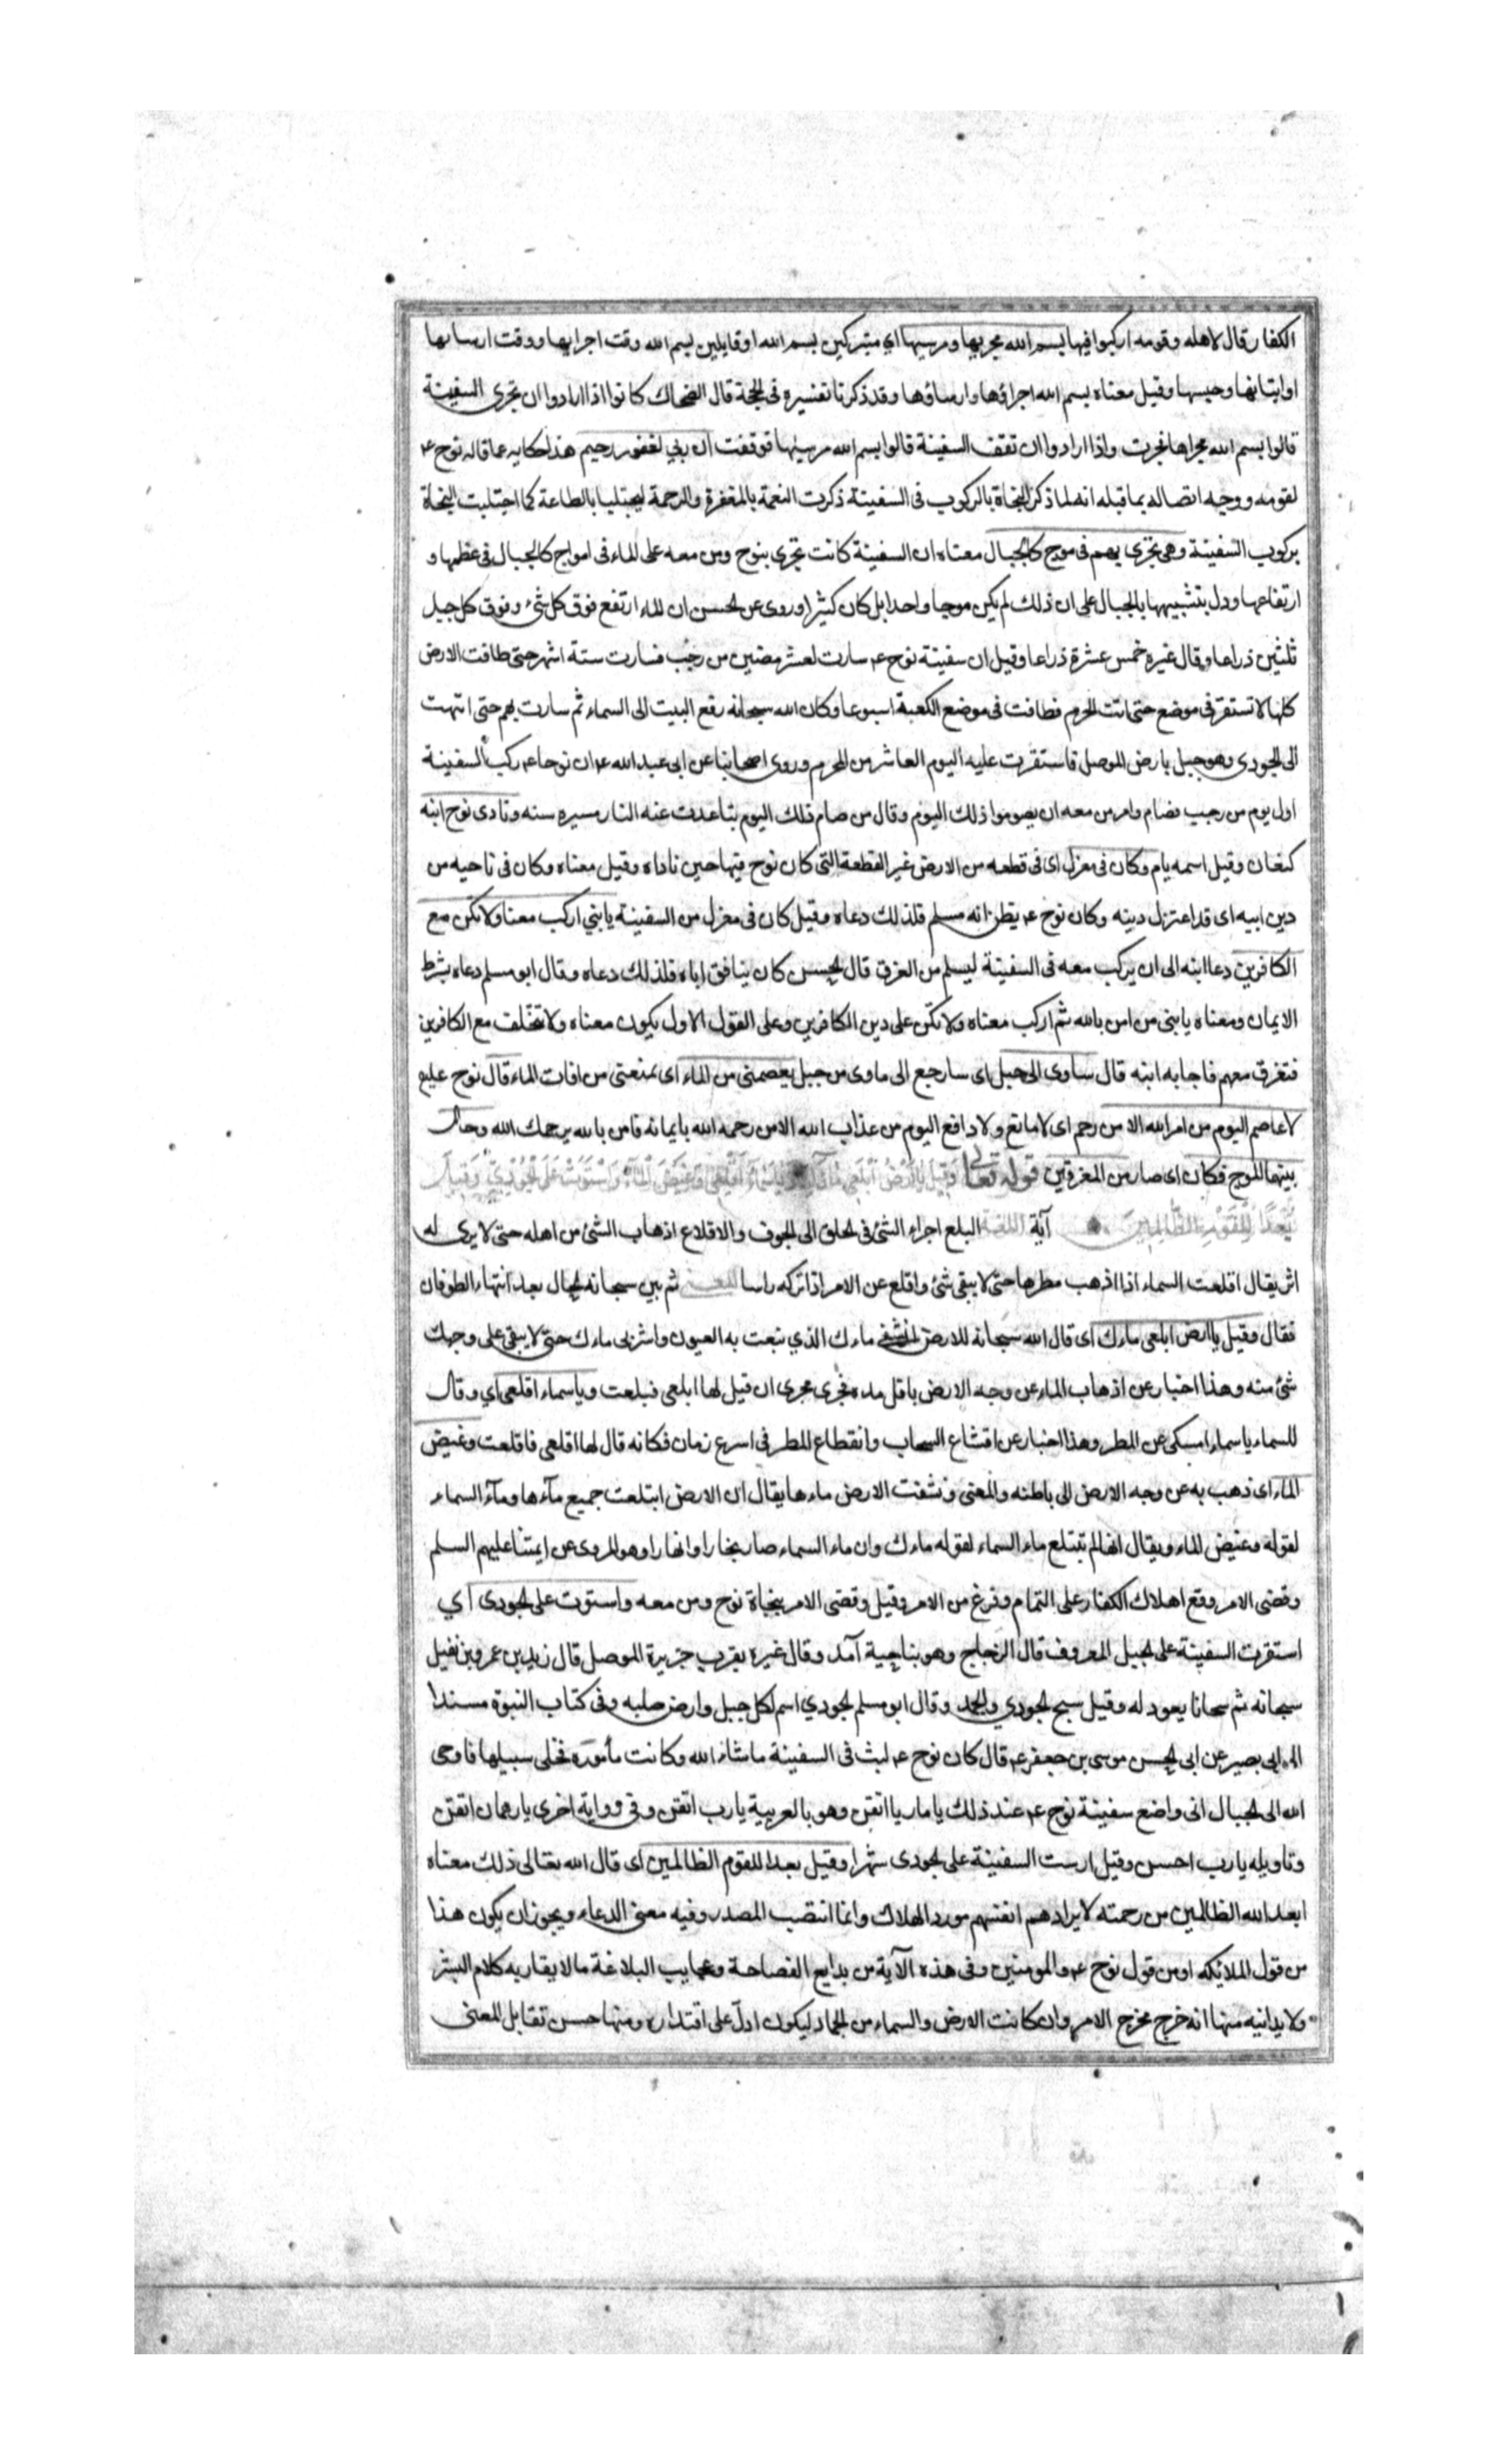 الكفار قال لاهله وقومه اركبوا فيها بسم الله مجريها ومرسيها اي متبركين بسم الله او قايلين بسم الله وقت اجرايها ووقت ارسايها
او اثباتها وحبسها وقيل معناه بسم الله اجراؤها وارساؤها وقد ذكرنا تفسيره فى الحجة قال الضحاك كانوا اذا ارادوا ان تجرى السفينة
قالوا بسم الله مجراها فجرت واذا ارادوا ان تقف السفينة قالوا بسم الله مرسيها فوقفت ان ربي لغفور رحيم هذا حكايه عما قاله نوح ع
لقومه ووجه اتصاله بما قبله انه لما ذكر النجاة بالركوب فى السفينة ذكرت النعمة بالمغفرة والرحمة ليجتلبا بالطاعة كما اجتلبت النجاة
بركوب السفينة وهى تجرى بهم فى موج كالجبال معناه ان السفينة كانت تجرى بنوح ومن معه على الماء فى امواج كالجبال فى عظمها و
ارتفاعها ودل بتشبيهها بالجبال على ان ذلك لم يكن موجا واحدا بل كان كثيرا وروى عن الحسن ان الماء ارتفع فوق كل شئ وفوق كل جبل
ثلثين ذراعا وقال غيره خمس عشرة ذراعا وقيل ان سفينة نوح ع سارت لعشر مضين من رجب فسارت ستة اشهر حتى طافت الارض
كلها لا تستقر فى موضع حتى اتت الحرم فطافت فى موضع الكعبة اسبوعا وكان الله سبحانه رفع البيت الى السماء ثم سارت بهم حتى انتهت
الى الجودى وهو جبل بارض الموصل فاستقرت عليه اليوم العاشر من المحرم وروى اصحابنا عن ابى عبد الله ع ان نوحا ع ركب السفينة
اول يوم من رجب فصام وامر من معه ان يصوموا ذلك اليوم وقال من صام ذلك اليوم تباعدت عنه النار مسيره سنه ونادى نوح ابنه
كنعان وقيل اسمه يام وكان فى معزل اى فى قطعه من الارض غير القطعة التى كان نوح فيها حين ناداه وقيل معناه وكان فى ناحيه من
دين ابيه اى قد اعتزل دينه وكان نوح ع يظن انه مسلم فلذلك دعاه وقيل كان فى معزل من السفينة يا بني اركب معنا ولا تكن مع
الكافرين دعا ابنه الى ان يركب معه فى السفينة ليسلم من الغرق قال الحسن كان ينافق اباه فلذلك دعاه وقال ابو مسلم دعاه بشرط
الايمان ومعناه يا بنى من امن بالله ثم اركب معناه ولا تكن على دين الكافرين وعلى القول الاول يكون معناه ولا تتخلف مع الكافرين
فتغرق معهم فاجابه ابنه قال ساوى الى جبل اى سارجع الى ماوى من جبل يعصمنى من الماء اى يمنعنى من افات الماء قال نوح عليع
لا عاصم اليوم من امر الله الا من رحم اى لا مانع ولا دافع اليوم من عذاب الله الا من رحمه الله بايمانه فامن بالله يرحمك الله وحال
بينهما الموج فكان اى صار من المغرقين قوله تعالى وقيل يا ارض ابلعي ماءك ويا سماء اقلعي وغيض الماء واستوت على الجودي وقيل
بعدا للقوم الظالمين آية اللغة البلع اجراء الشئ فى الحلق الى الجوف والاقلاع اذهاب الشئ من اهله حتى لا يرى له
اثر يقال اقلعت السماء اذا اذهب مطرها حتى لا يبقى شئ واقلع عن الامر اذا تركه راسا المعنى ثم بين سبحانه الحال بعد انتهاء الطوفان
فقال وقيل يا ارض ابلعى ماءك اى قال الله سبحانه للارض انشفى ماءك الذي نبعت به العيون واشربى ماءك حتى لا يبقى على وجهك
شئ منه وهذا اخبار عن اذهاب الماء عن وجه الارض باقل مدة فجرى مجرى ان قيل لها ابلعى فبلعت ويا سماء اقلعى اي وقال
للسماء يا سماء امسكى عن المطر وهذا اخبار عن اقشاع السحاب وانقطاع المطر فى اسرع زمان فكانه قال لها اقلعى فاقلعت وغيض
الماء اى ذهب به عن وجه الارض الى باطنه والمعنى ونشفت الارض ماءها يقال ان الارض ابتلعت جميع مآءها ومآء السماء
لقوله وغيض الماء ويقال انها لم تبتلع ماء السماء لقوله ماءك وان ماء السماء صار بحارا وانهارا وهو المروى عن ايمتنا عليهم السلم
وقضى الامر وقع اهلاك الكفار على التمام وفرغ من الامر وقيل وقضى الامر بنجاة نوح ومن معه واستوت على الجودى اي
استقرت السفينة على الجبل المعروف قال الزجاج وهو بناحية آمد وقال غيره بقرب جزيرة الموصل قال زيد بن عمرو بن نفيل
سبحانه ثم سبحانا يعود له وقيل سبح الجودي والجمد وقال ابو مسلم الجودي اسم لكل جبل وارض صلبه وفى كتاب النبوة مسندا
الى ابى بصير عن ابى الحسن موسى بن جعفر ع قال كان نوح ع لبث فى السفينة ما شاء الله وكانت مأموره فخلى سبيلها فاوحى
الله الى الجبال انى واضع سفينة نوح ع عند ذلك يا ماريا اتقن وهو بالعربية يا رب اتقن وفى رواية اخرى يا رهمان اتقن
وتاويله يا رب احسن وقيل ارست السفينة على الجودى شهرا وقيل بعدا للقوم الظالمين اى قال الله تعالى ذلك معناه
ابعد الله الظالمين من رحمته لايرادهم انفسهم مورد الهلاك وانما انتصب المصدر وفيه معنى الدعاء ويجوز ان يكون هذا
من قول الملايكه او من قول نوح ع والمومنين وفى هذه الآية من بدايع الفصاحة وعجايب البلاغة ما لا يقاربه كلام البشر
ولا يدانيه منها انه خرج مخرج الامر وان كانت الارض والسماء من الجماد ليكون ادل على اقتداره ومنها حسن تقابل المعنى